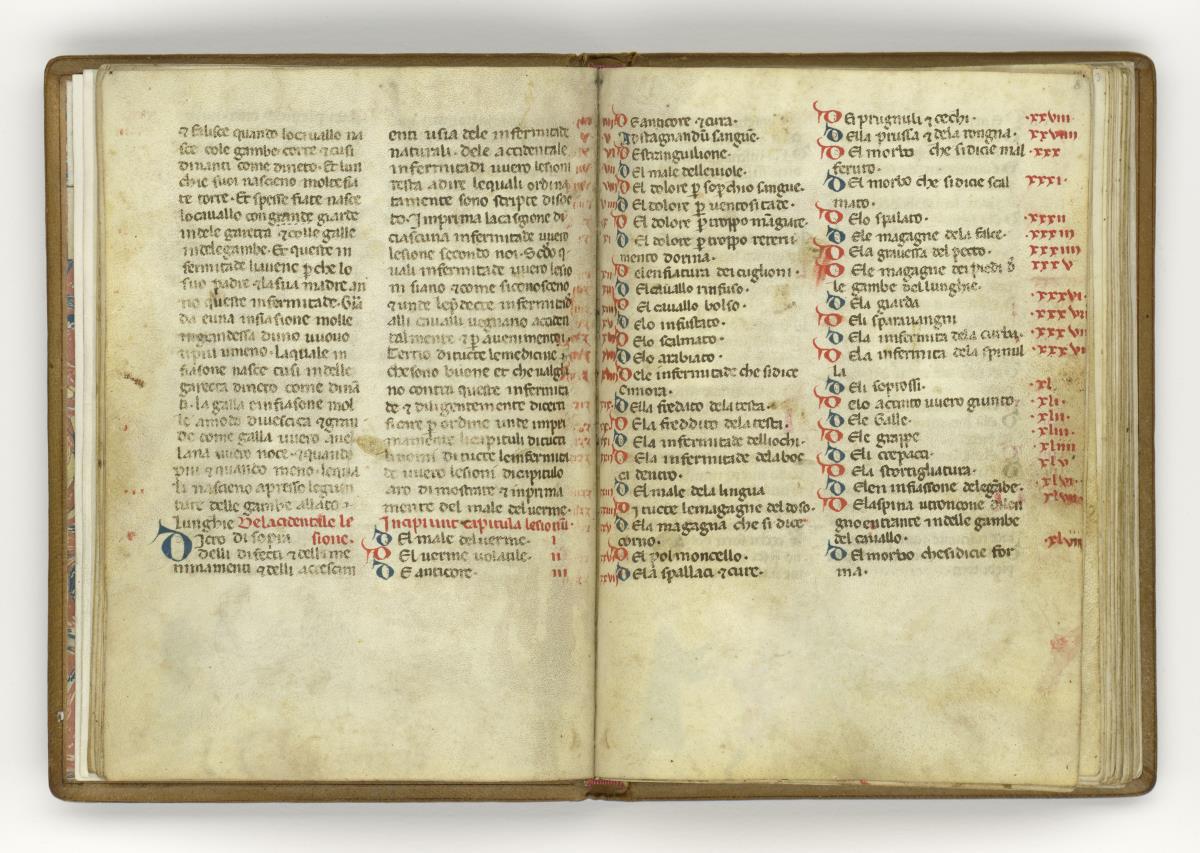 ⁊ falisce quando lo cauallo na
sce cole gambe torte ⁊ cusi
dinanti come dirieto. Et lun
chie suoi nascieno molte fia
te torte. Et spesse fiate nasce
lo cauallo con grande giarde
in dele garecta ⁊ colle galle
in dele gambe. Et queste in
fermitade li auene p̄ che lo
suo padre ⁊ la sua madre an
no queste infermitade. Giar
da e una infiasione molle
ingrandessa duno vuouo
u piu u meno. La quale in
fiasione nasce cusi in delle
garecta dirieto come dinan
ti. la galla e infiasione mol
le amodo di uescica ⁊ gran
de come galla uuero auel
lana uuero noce. ⁊ quando
piu ⁊ quando meno. le qua
li nascieno apresso le giun
ture delle gambe allato
lunghie De lacidentelle le
Dicto di sopra sione.
delli difecti ⁊ delli me
nimamenti ⁊ delli acrescim
enti u sia dele infermitade
naturali. dele accidentale
infermitadi uuero lesioni
resta a dire le quali ordina
tamente sono scripte disoc
to. Imprima la casgione di
ciascuna infermitade uuero
lesione secondo noi. Scđo q̄
uali infermitade uuero lesio
ni siano ⁊ come si cenosceno
⁊ unde le p̄decte infermitad
alli caualli uegnano acciden
talmente ⁊ p̄ auenimento.
Tertio di tucte le medicine
che sono buone et che uagli
no contra queste infermita
de ⁊ diligentemente dicem
si cure p̄ ordine unde impri
mamente li capituli di tucti
li nomi di tucte le infermita
de uuero lesioni di capitulo
aro di mostrare ⁊ in prima
mente del male del verme.
Incipiunt capitula lesionū.
D El male del verme. I
D El uerme uolatile. II
D E anticore. III
D E anticore ⁊ cura.
A d stagnandū sangue.
D E stranguilione.
D El male delle uiole.
D El dolore p̄ sop̄chio sangue.
D El dolore p̄ ventositade.
D El dolore p̄ troppo māgiare.
D El dolore p̄ troppo reteni
mento dorina.
D e lenfiatura dei cuglioni.
D El cauallo infuso.
D El cauallo bolso.
D Elo infustato.
D Elo scalmato.
D Elo arabiato.
D ele infermitade che si dice
cimora.
D Ella fredato dela testa.
D Ela freddito dela testa.
D Ela infermitade delliochi.
D Ela infermitade dela boc
ca dentro.
D El male dela lingua
D i tucte le magagne del doso.
D Ela magagna che si dice
corno.
D El polmoncello.
D Ela spallaci ⁊ cure.
D E prugnuli ⁊ cechi. XXVIII
D Ella prussa ⁊ dela rongna. XXVIIII
D El morbo che si dicie mal XXX
feruto.
D El morbo che si dicie scal XXXI
mato.
D Elo spalato. XXXII
D Ele magagne dela falce. XXXIII
D Ela grauessa del pecto. XXXIIII
D Ele magagne dei piedi ⁊ d XXXV
le gambe del lunghie.
D Ela giarda XXXVI
D Eli sparauangni XXXVII
D Ela infermita dela curba.
D Ela infermita dela spinul
la
D Eli soprossi. XL
D Elo actinto uuero giunto. XLI
D Ele Galle. XLII
D Ele grappe XLIII
D Eli crepacci. XLIIII
D Ela stortigliatura. XLV
D Elen infiassone dele gābe. XLVI
D Ela spina u troncone di len
gno entrante in delle gambe
del cauallo.
D El morbo che si dicie for XLVIII
ma.